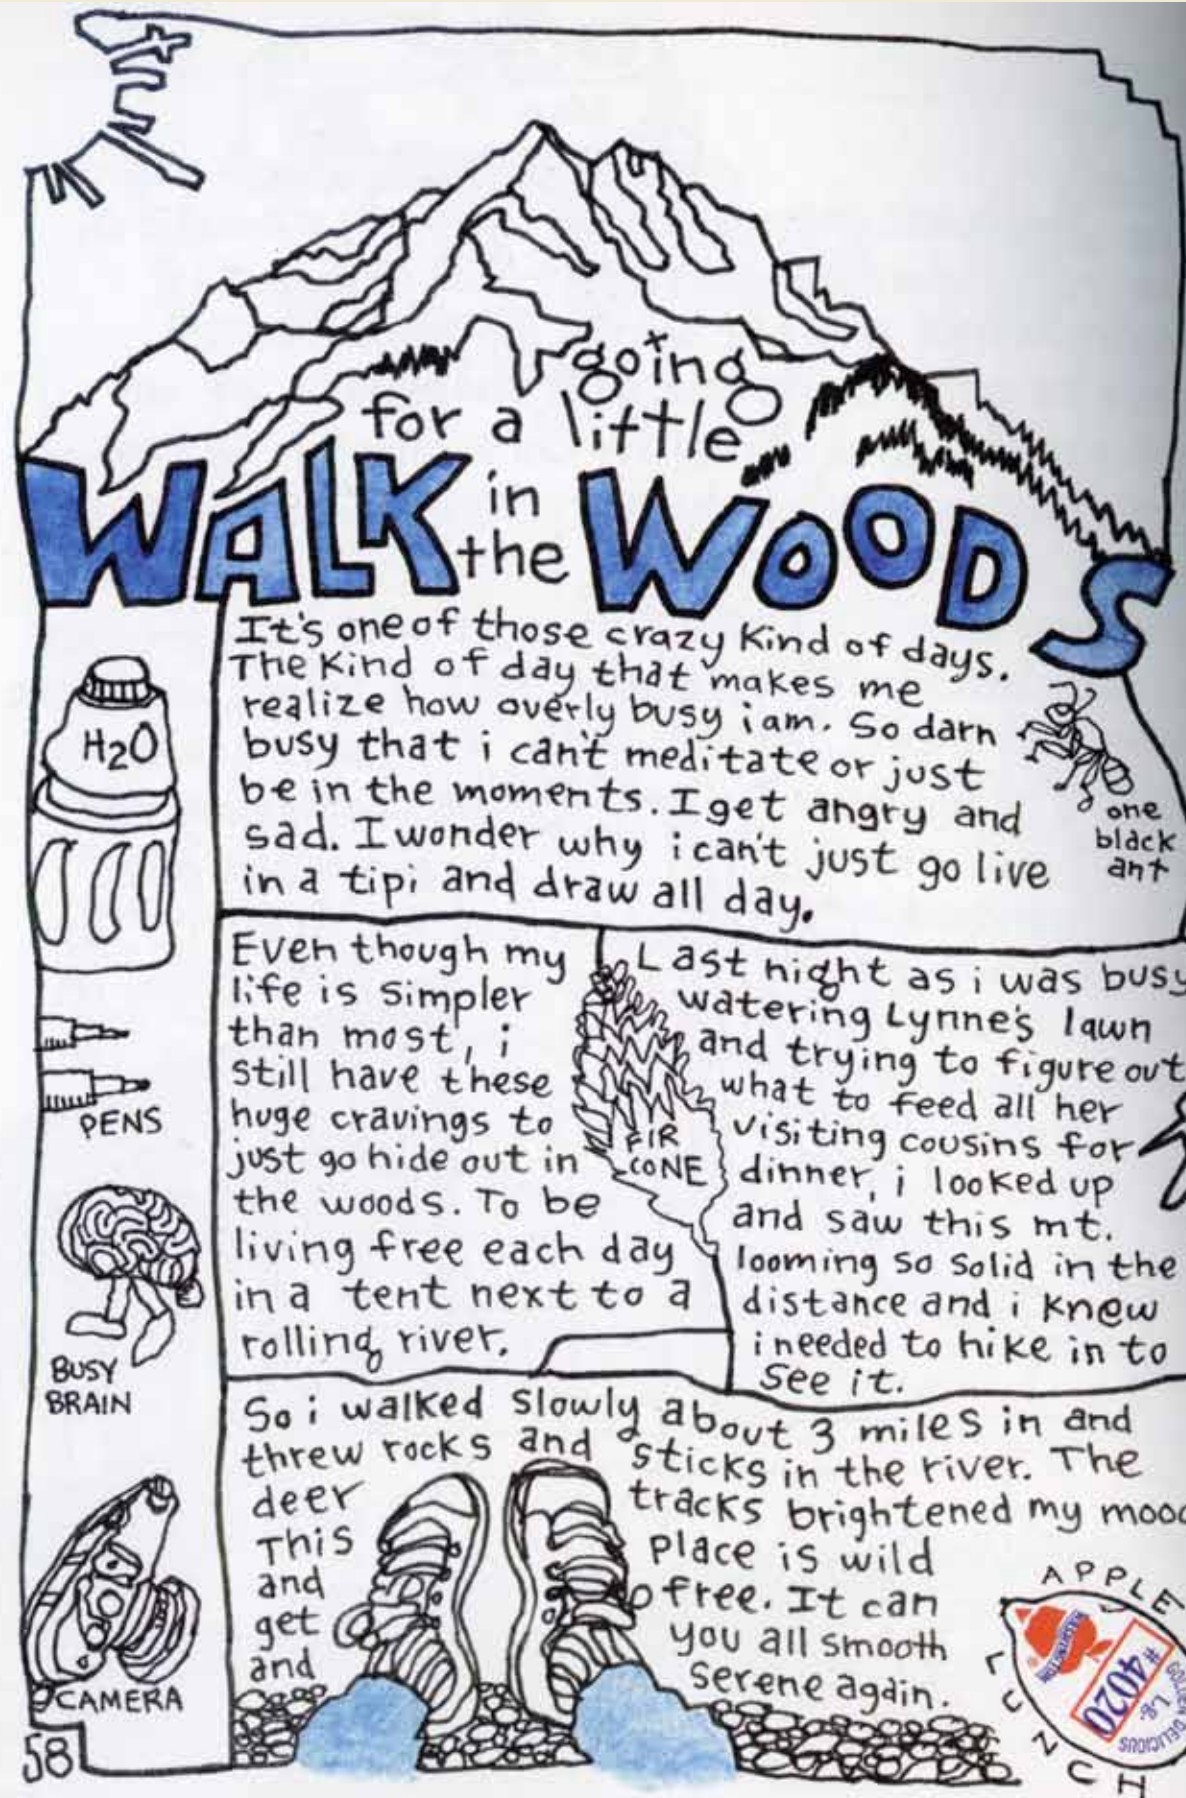 going
for a little
WALK in the WOODS
It's one of those crazy kind of days.
The kind of day that makes me
realize how overly busy i am. So darn
busy that i can't meditate or just
be in the moments. I get angry and
sad. I wonder why i can't just go live
in a tipi and draw all day.
one
black
ant
H2O
PENS
BUSY
BRAIN
CAMERA
Even though my
life is simpler
than most, i
still have these
huge cravings to
just go hide out in
the woods. To be
living free each day
in a tent next to a
rolling river.
FIR
CONE
Last night as i was busy
watering Lynne's lawn
and trying to figure out
what to feed all her
visiting cousins for
dinner, i looked up
and saw this mt.
looming so solid in the
distance and i knew
i needed to hike in to
see it.
So i walked slowly about 3 miles in and
threw rocks and sticks in the river. The
deer tracks brightened my mood
This place is wild
and free. It can
get you all smooth
and serene again.
APPLE
LUNCH
WASHINGTON
#4020
LG.
GOLDEN DELICIOUS
58